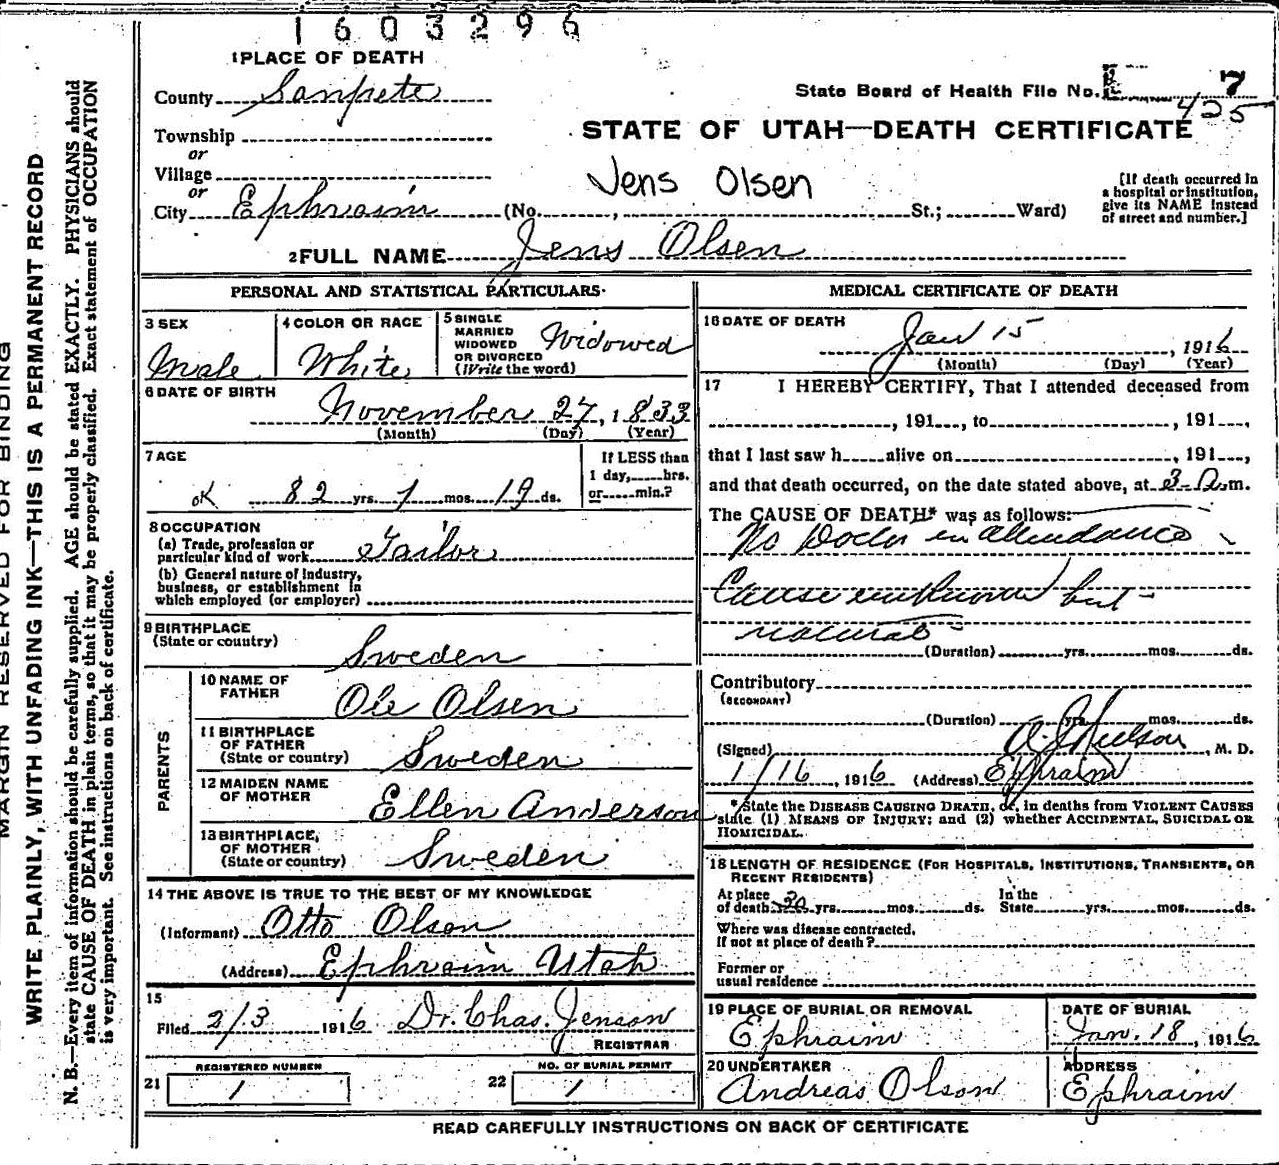 1603296
1 PLACE OF DEATH
County Sanpete
State Board of Health File No. 7
425
Township
or
STATE OF UTAH—DEATH CERTIFICATE
Village
or
Jens Olsen
City Ephraim (No. , St.; Ward)
[If death occurred in
a hospital or institution,
give its NAME instead
of street and number.]
2 FULL NAME Jens Olsen
PERSONAL AND STATISTICAL PARTICULARS
3 SEX
Male
4 COLOR OR RACE
White
5 SINGLE
MARRIED
WIDOWED
OR DIVORCED
(Write the word)
Widowed
6 DATE OF BIRTH
November 27, 1833
(Month) (Day) (Year)
7 AGE
OK 82 yrs. 1 mos. 19 ds.
If LESS than
1 day, hrs.
or min.?
8 OCCUPATION
(a) Trade, profession or
particular kind of work Tailor
(b) General nature of industry,
business, or establishment in
which employed (or employer)
9 BIRTHPLACE
(State or country)
Sweden
PARENTS
10 NAME OF
FATHER
Ole Olsen
11 BIRTHPLACE
OF FATHER
(State or country) Sweden
12 MAIDEN NAME
OF MOTHER
Ellen Anderson
13 BIRTHPLACE,
OF MOTHER
(State or country) Sweden
14 THE ABOVE IS TRUE TO THE BEST OF MY KNOWLEDGE
(Informant) Otto Olson
(Address) Ephraim Utah
15
Filed 2/3 1916 Dr. Chas. Jenson
REGISTRAR
21 REGISTERED NUMBER
1
22 NO. OF BURIAL PERMIT
1
MEDICAL CERTIFICATE OF DEATH
16 DATE OF DEATH
Jan 15, 1916
(Month) (Day) (Year)
17 I HEREBY CERTIFY, That I attended deceased from
, 191 , to , 191 ,
that I last saw h alive on , 191 ,
and that death occurred, on the date stated above, at 3 m.
The CAUSE OF DEATH* was as follows:
No Doctor in attendance
Cause unknown but
natural
(Duration) yrs. mos. ds.
Contributory
(SECONDARY)
(Duration) yrs. mos. ds.
(Signed) A. J. Neilson, M. D.
1/16, 1916 (Address) Ephraim
*State the DISEASE CAUSING DEATH, or, in deaths from VIOLENT CAUSES
state (1) MEANS OF INJURY; and (2) whether ACCIDENTAL, SUICIDAL OR
HOMICIDAL.
18 LENGTH OF RESIDENCE (FOR HOSPITALS, INSTITUTIONS, TRANSIENTS, OR
RECENT RESIDENTS)
At place
of death 30 yrs. mos. ds.
In the
State yrs. mos. ds.
Where was disease contracted,
if not at place of death?
Former or
usual residence
19 PLACE OF BURIAL OR REMOVAL
Ephraim
DATE OF BURIAL
Jan. 18, 1916
20 UNDERTAKER
Andreas Olson
ADDRESS
Ephraim
READ CAREFULLY INSTRUCTIONS ON BACK OF CERTIFICATE
MARGIN RESERVED FOR BINDING
WRITE PLAINLY, WITH UNFADING INK—THIS IS A PERMANENT RECORD
N. B.—Every item of information should be carefully supplied. AGE should be stated EXACTLY. PHYSICIANS should
state CAUSE OF DEATH in plain terms, so that it may be properly classified. Exact statement of OCCUPATION
is very important. See instructions on back of certificate.